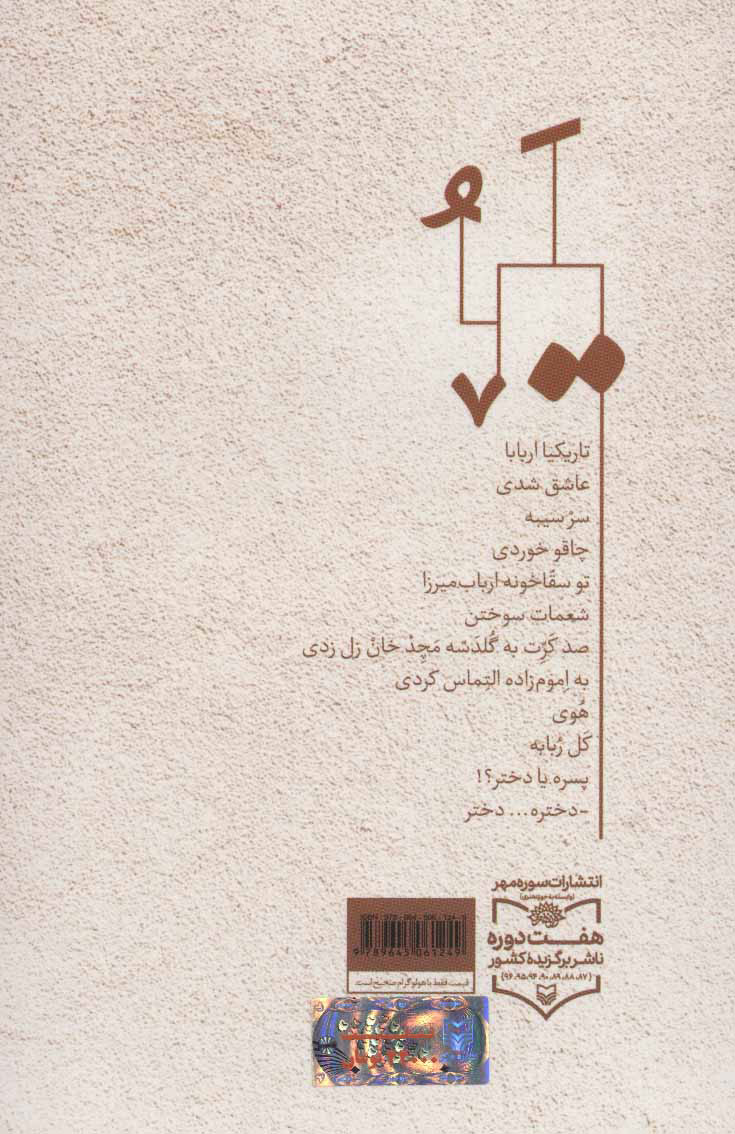 تاریکیا اربابا
عاشق شدی
سرْ سیبه
چاقو خوردی
تو سقّاخونه ارباب‌میرزا
شعمات سوختن
صد کَرِّت به گُلدَسّه مَچِدْ خانْ زل زدی
به اِموم‌زاده التماس کردی
هُوی
کَل رُبابه
پسره یا دختر؟!
-دختره... دختر
انتشارات سوره مهر
(وابسته به حوزه هنری)
هفت دوره
ناشر برگزیدهٔ کشور
(۸۷، ۸۸، ۸۹، ۹۰، ۹۴، ۹۵، ۹۶)
9789645061249
قیمت فقط با هولوگرام صحیح است.